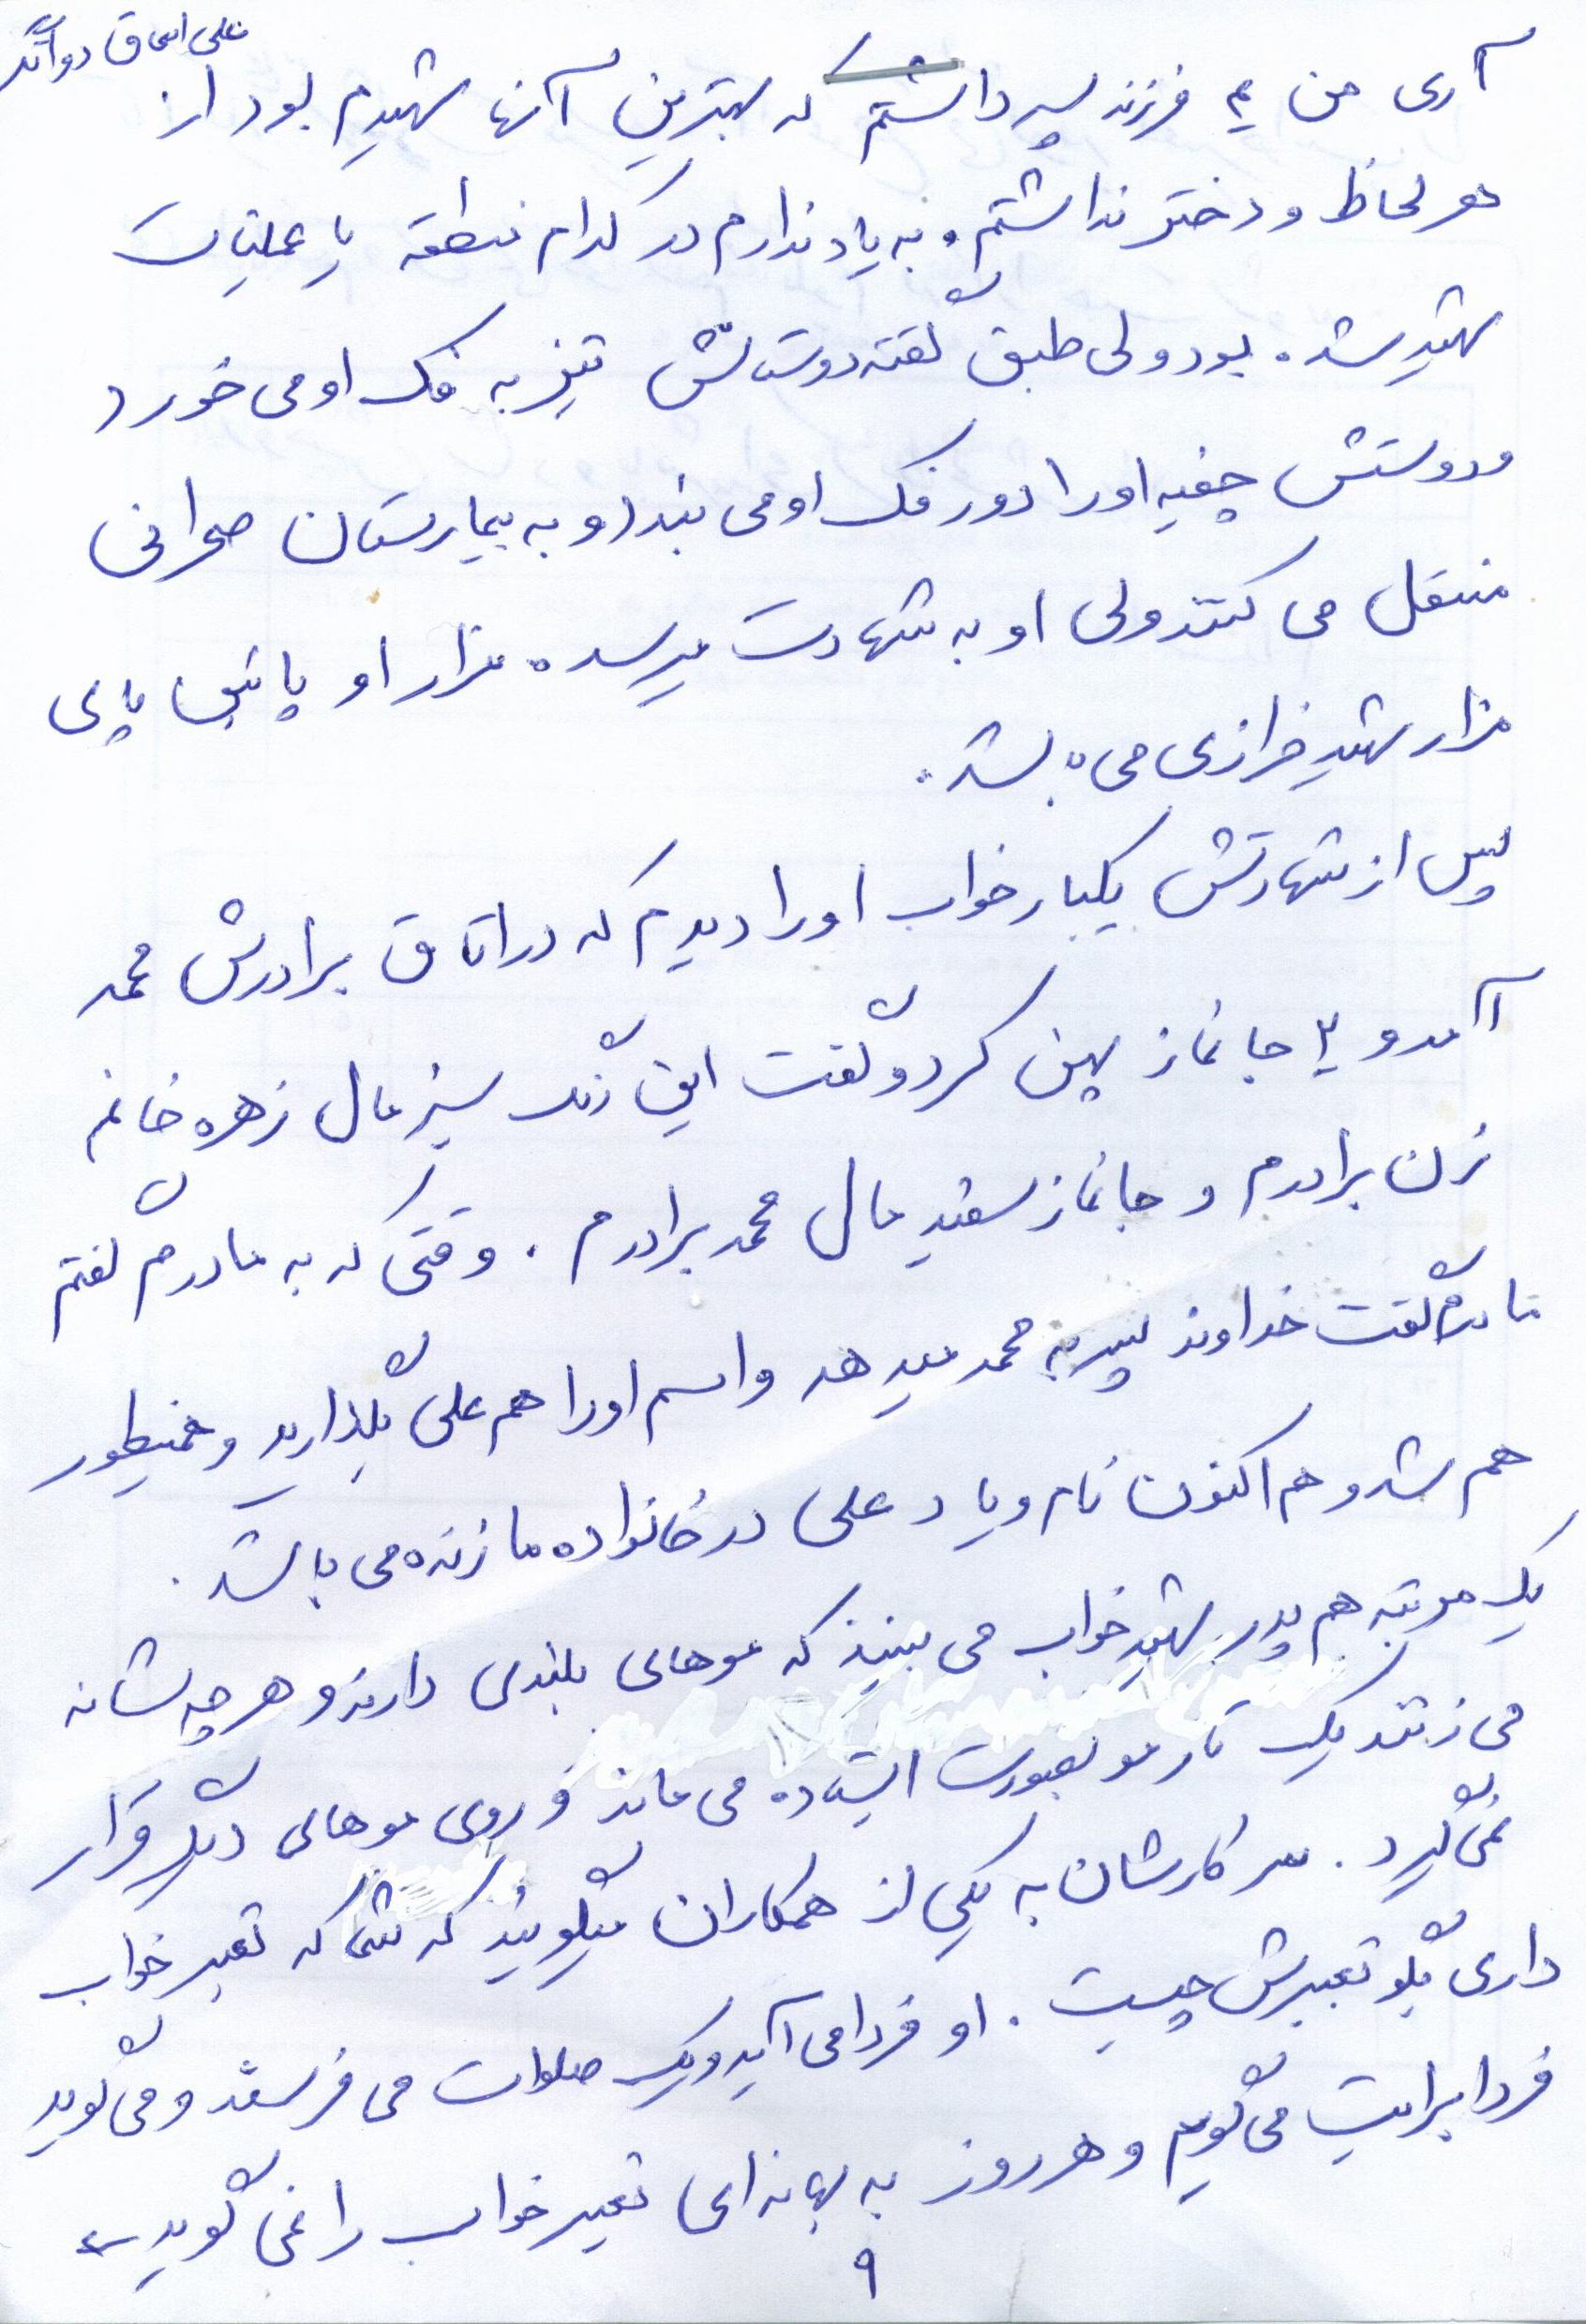 علی اسحاق دواتگر
آری من ۴ فرزند پسر داشتم که بهترین آنها شهیدم بود از
هر لحاظ و دختر نداشتم. به یاد ندارم در کدام منطقه یا عملیات
شهید شده بود ولی طبق گفته دوستانش تیر به فک او می خورد
و دوستش چفیه او را دور فک او می بندد و به بیمارستان صحرائی
منتقل می کنند ولی او به شهادت میرسد. مزار او پائین پای
مزار شهید خرازی می باشد.
پس از شهادتش یکبار خواب او را دیدم که در اتاق برادرش محمد
آمد و ۲ جانماز پهن کرد و گفت این رنگ سبز مال زهره خانم
زن برادرم و جانماز سفید مال محمد برادرم. وقتی که به مادرم گفتم
مادرم گفت خداوند پسر به محمد میدهد و اسم او را هم علی بگذارید و همینطور
هم شد و هم اکنون نام و یاد علی در خانواده ما زنده می باشد.
یک مرتبه هم پدر شهید خواب می بیند که موهای بلندی دارند و هر چه شانه
می زنند یک تار مو بصورت ایستاده می ماند و روی موهای دیگر قرار
نمی گیرد. سر کارشان به یکی از همکاران میگویند که شما که تعبیر خواب
داری بگو تعبیرش چیست. او فردا می آید و یک صلوات می فرستد و می گوید
فردا برایت می گویم و هر روز به بهانه ای تعبیر خواب را نمی گوید
۹